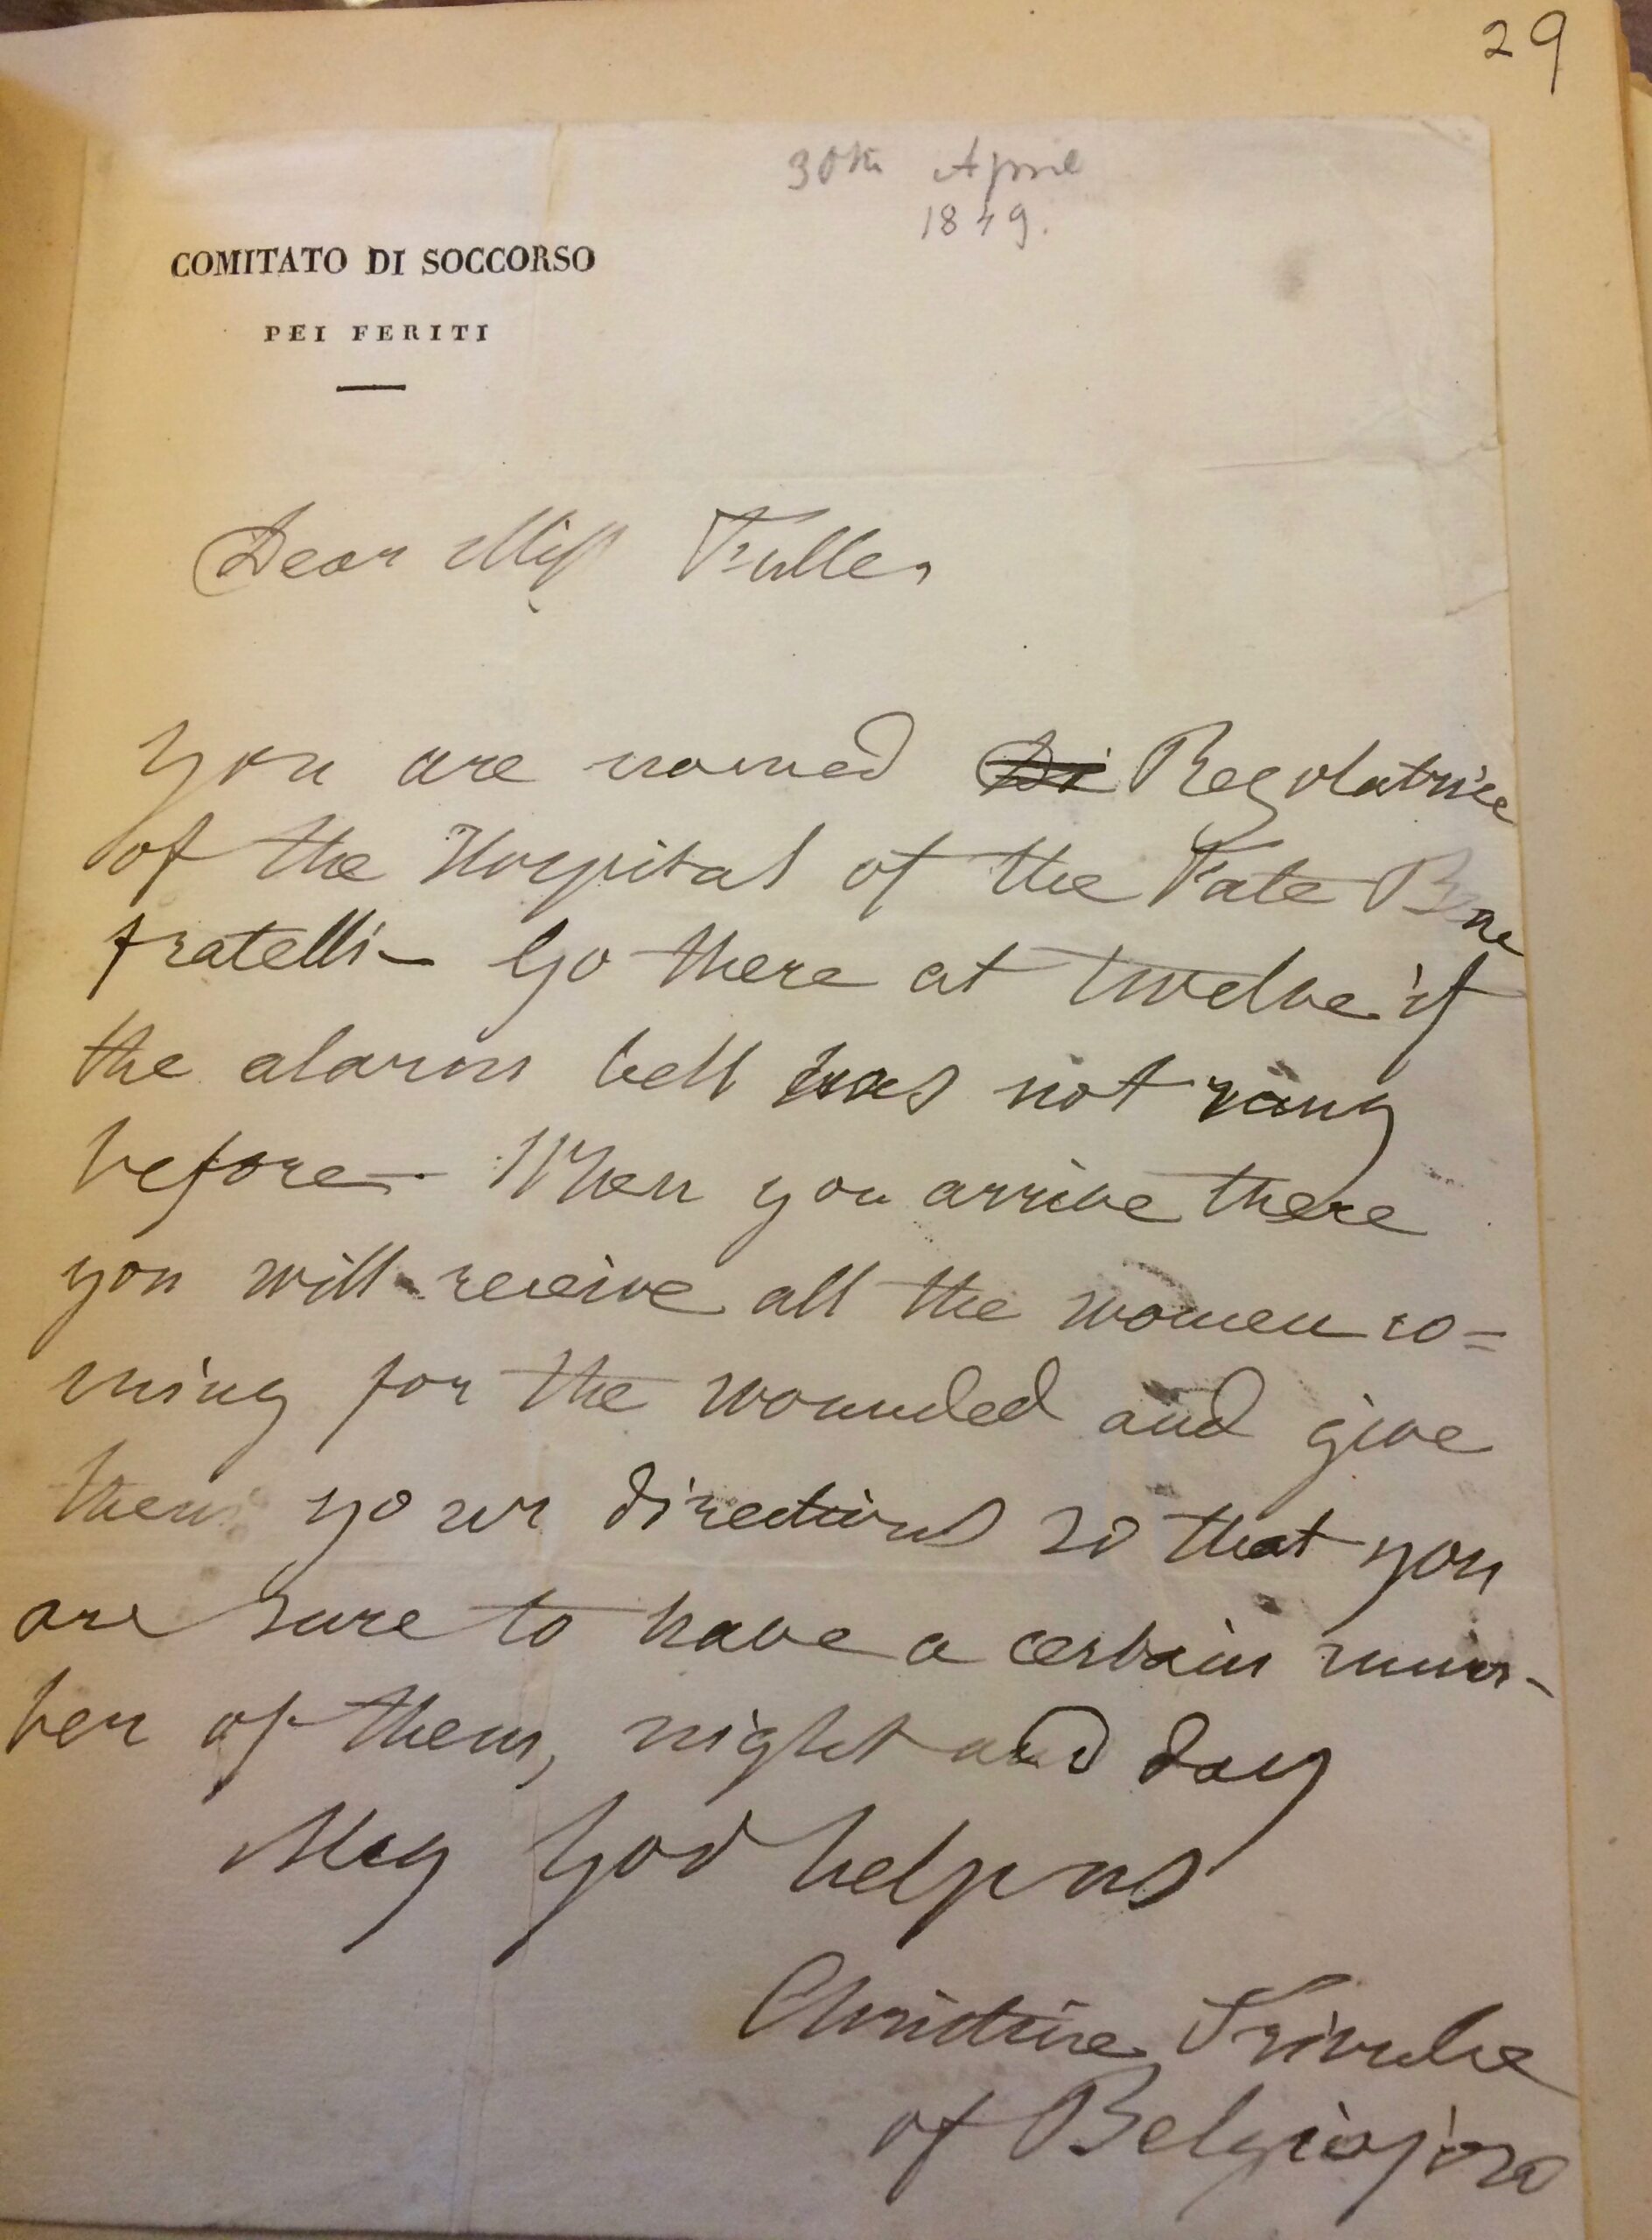 29
30th April
1849.
COMITATO DI SOCCORSO
PEI FERITI
Dear Miss Fuller
You are named Di Regolatrice
of the Hospital of the Fate Bene
fratelli – Go there at twelve if
the alarm bell has not rang
before – When you arrive there
you will receive all the women co=
ming for the wounded and give
them your directions so that you
are sure to have a certain num-
ber of them, night and day
May God help us
Christine Trivulce
of Belgiojoso